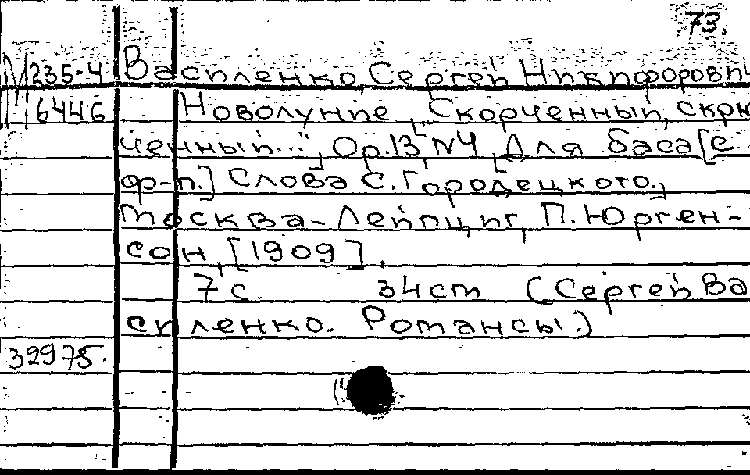 73.
М 235-4 Василенко, Сергей Никифорови
6446 Новолуние, „Скорченный, скрю
ченный...", Op. 13, N 4, Для баса [с
ф-п.] Слова С. Городецкого.,
Москва-Лейпциг, П. Юрген-
сон, [1909].
7 с 34 см (Сергей Ва
силенко. Романсы.)
32975.